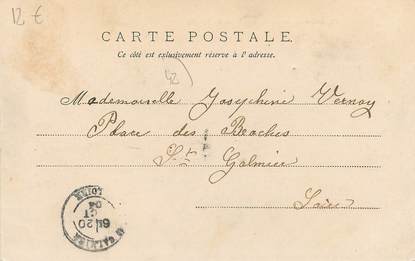 12 €
CARTE POSTALE.
Ce côté est exclusivement réservé à l'adresse.
42
Mademoiselle Vernay
Place des Roches
St Galmier
Loire
ST GALMIER
LOIRE
20
04